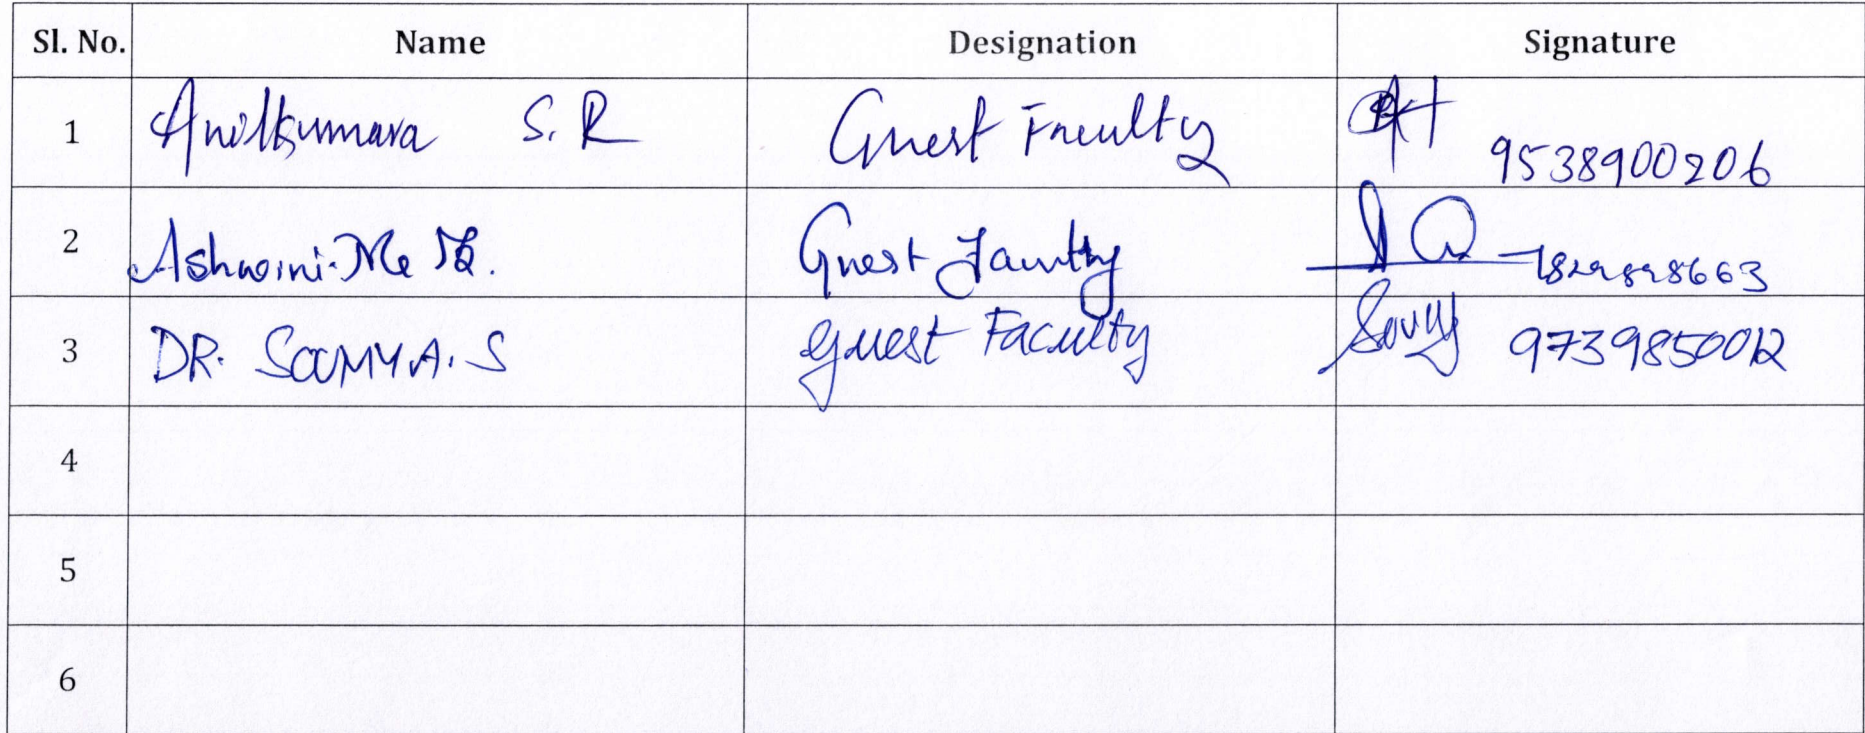 Sl. No. Name Designation Signature
1 Anilkumara S. R Guest Faculty 9538900206
2 Ashwini. Guest Faculty
3 DR. SOWMYA. S Guest Faculty Sowmy 9739850012
4
5
6